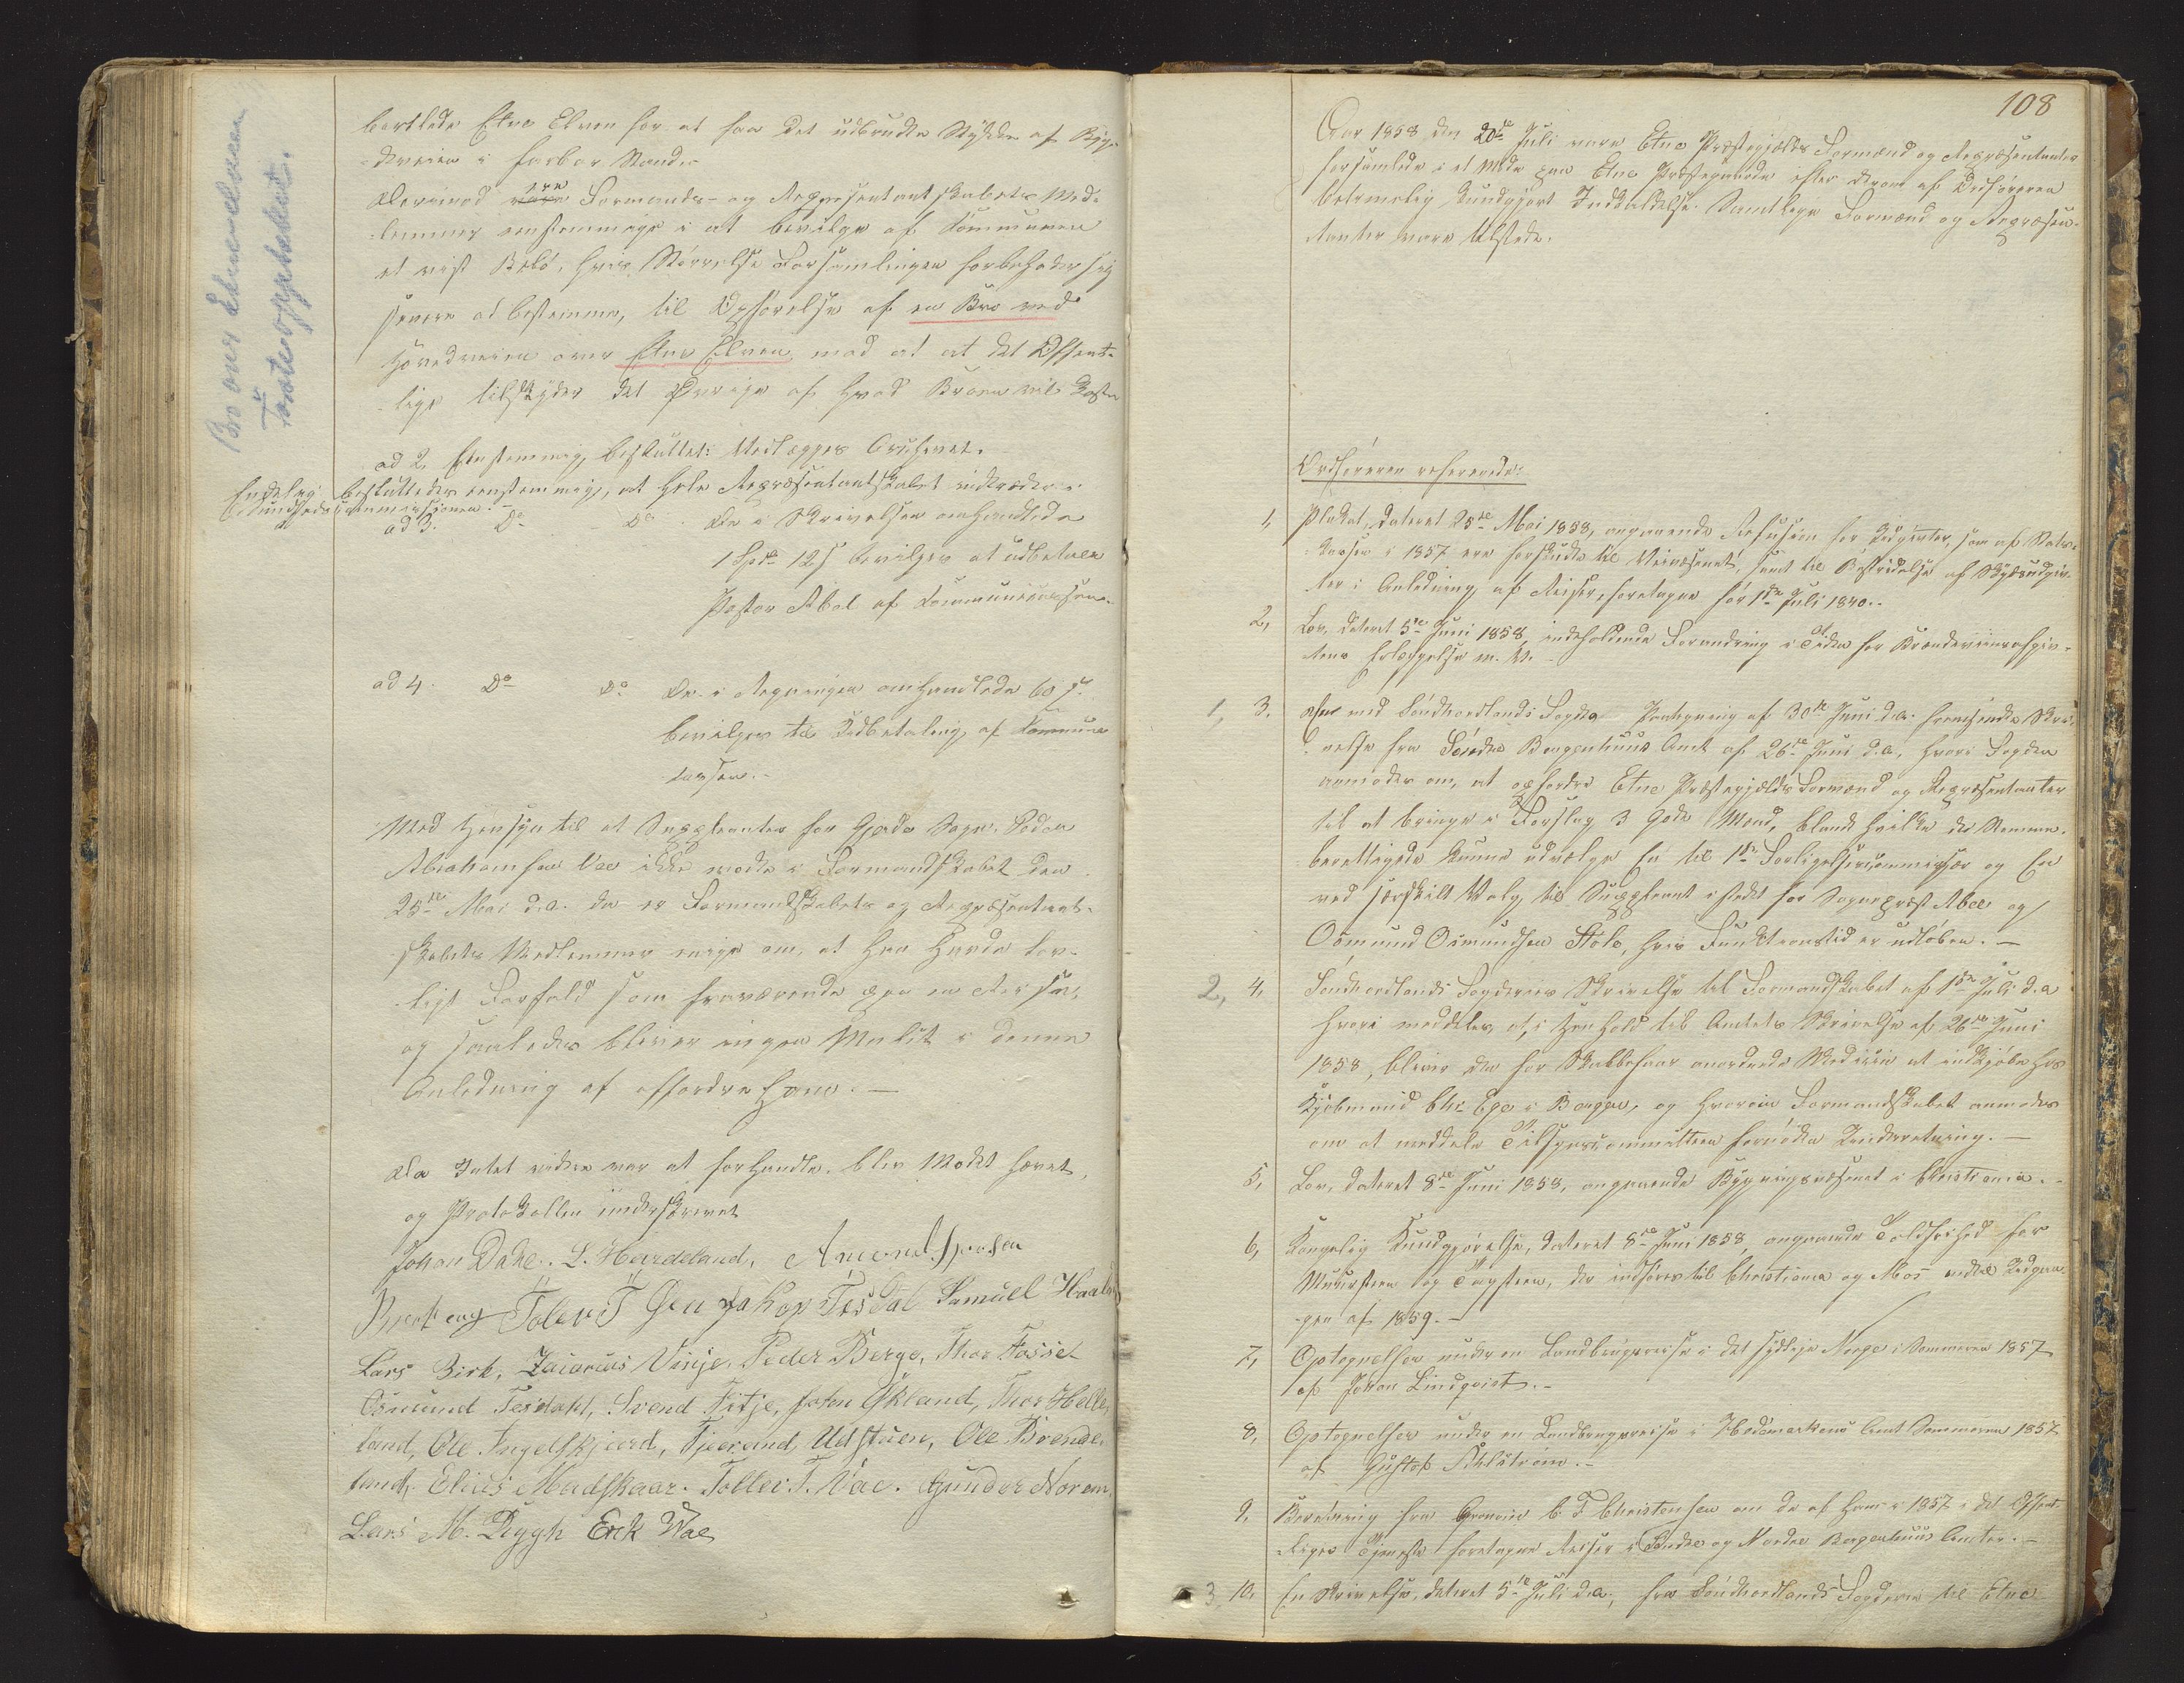 Bro over Etneelven
Første opphekut.
bortlede Etne Elven for at faa det udbrudte Stykke af Byg-
deveien i farbar Stand.
Derimod ere Formands- og Repræsentantskabets Med-
lemmer eenstemmige i at bevilge af Kommunen
et vist Beløb, hvis Størrelse Forsamlingen forbeholder sig
senere at bestemme, til Opførelse af en Bro ved
Hovedveien over Etne Elven, mod at det Offent-
lige tilskyder det Øvrige af hvad Broen vil koste
ad 2, Eenstemmig besluttet: Henlægges Archivet.
Endelig besluttedes eenstemmig, at hele Repræsentantskabet indtræder i
Sundhedscommissionen.
ad 3. Do Do De i Skrivelsen omhandlede
1 Spd 12 s bevilges at udbetales
Pastor Abel af Kommunecassen.
ad 4. Do Do De i Regningen omhandlede 60 s
bevilges til Udbetaling af Kommune
cassen.
Med Hensyn til at Suppleanten for Gjerde Sogn, Peder
Abrahamsen Vae ikke mødte i Formandskabet den
25de Mai d.a. da er Formandskabets og Repræsentant-
skabets Medlemmer enige om, at han havde lov-
ligt Forfald som fraværende paa en Reise,
og saaledes bliver ingen Mulkt i denne
Anledning at affordre ham.
Da Intet videre var at forhandle, blev Mødet hævet,
og Protokollen underskrevet
Johan Dahl. L. Hardeland, Amund
Tolev T Jakop Tesdal Samuel Haaland
Lars Birk, Zacarias Vinje, Peder Berge, Thor Fosse
Osmund Tesdahl, Svend Fitje, John Økland, Thor Helle-
land, Ole Ingelskjærd, Tjerand Udstuen, Ole Brende-
land, Elias Madskaar. Tollev T. Vae. Gunder Norem
Lars M. Diggh Erik Vae
108
Aar 1858 den 20de Juli vare Etne Præstegjælds Formænd og Repræsentanter
forsamlede i et Møde paa Etne Præstegaard efter derom af Ordføreren
betimelig kundgjort Indkaldelse. Samtlige Formænd og Repræsen-
tanter vare tilstede.
Ordføreren refererede:
1, Plakat, dateret 25de Mai 1858, angaaende Refusion for Udgivter, som af Stats-
kassen i 1857 ere forskudte til Veivæsenet, samt til Bestridelse af Skydsudgiv-
ter i Anledning af Reiser, foretagne før 1ste Juli 1840.
2, Lov, dateret 5te Juni 1858, indeholdende Forandring i Tiden for Brændeviinsafgiv-
tens Erlæggelse m. V.
1, 3. En med Søndhordlands Fogdes Paategning af 30te Juni d.a. fremsendte Skri-
velse fra Søndre Bergenhuus Amt af 26de Juni d.a., hvori Fogden
anmodes om, at opfordre Etne Præstegjælds Formænd og Repræsentanter
til at bringe i Forslag 3 gode Mænd, blandt hvilke de Stemme-
berettigede kunne udvælge En til 1ste Forligelsescommissær og En
ved særskilt Valg til Suppleant istedet for Sognepræst Abel og
Osmund Osmundsen Støle, hvis Funktionstid er udløben.
2, 4, Søndhordlands Fogderies Skrivelse til Formandskabet af 1ste Juli d.a
hvori meddeles, at, i Henhold til Amtets Skrivelse af 26de Juni
1858, bliver den for Skabbefaar anordnede Medicin at indkjøbe hos
Kjøbmand Chr. Ege i Bergen, og hvorom Formandskabet anmodes
om at meddele Tilsynscommitteen fornøden Underretning.
5, Lov, dateret 8de Juni 1858, angaaende Bygningsvæsenet i Christiania.
6, Kongelig Kundgjørelse, dateret 8de Juni 1858, angaaende Toldfrihed for
Muursteen og Tagsteen, der indføres til Christiania og Mos indtil Udgan-
gen af 1859.
7, Optegnelser under en Landbrugsreise i det sydlige Norge i Sommeren 1857
af Johan Lindqvist.
8, Optegnelser under en Landbrugsreise i Hedemarkens Amt Sommeren 1857
af Gustaf
9, Beretning fra Agronom C. F. Christensen om de af ham i 1857 i det Offent-
liges Tjeneste foretagne Reiser i Søndre og Nordre Bergenhuus Amter.
3, 10, En Skrivelse, dateret 5te Juli d.a., fra Søndhordlands Fogderie til Etne